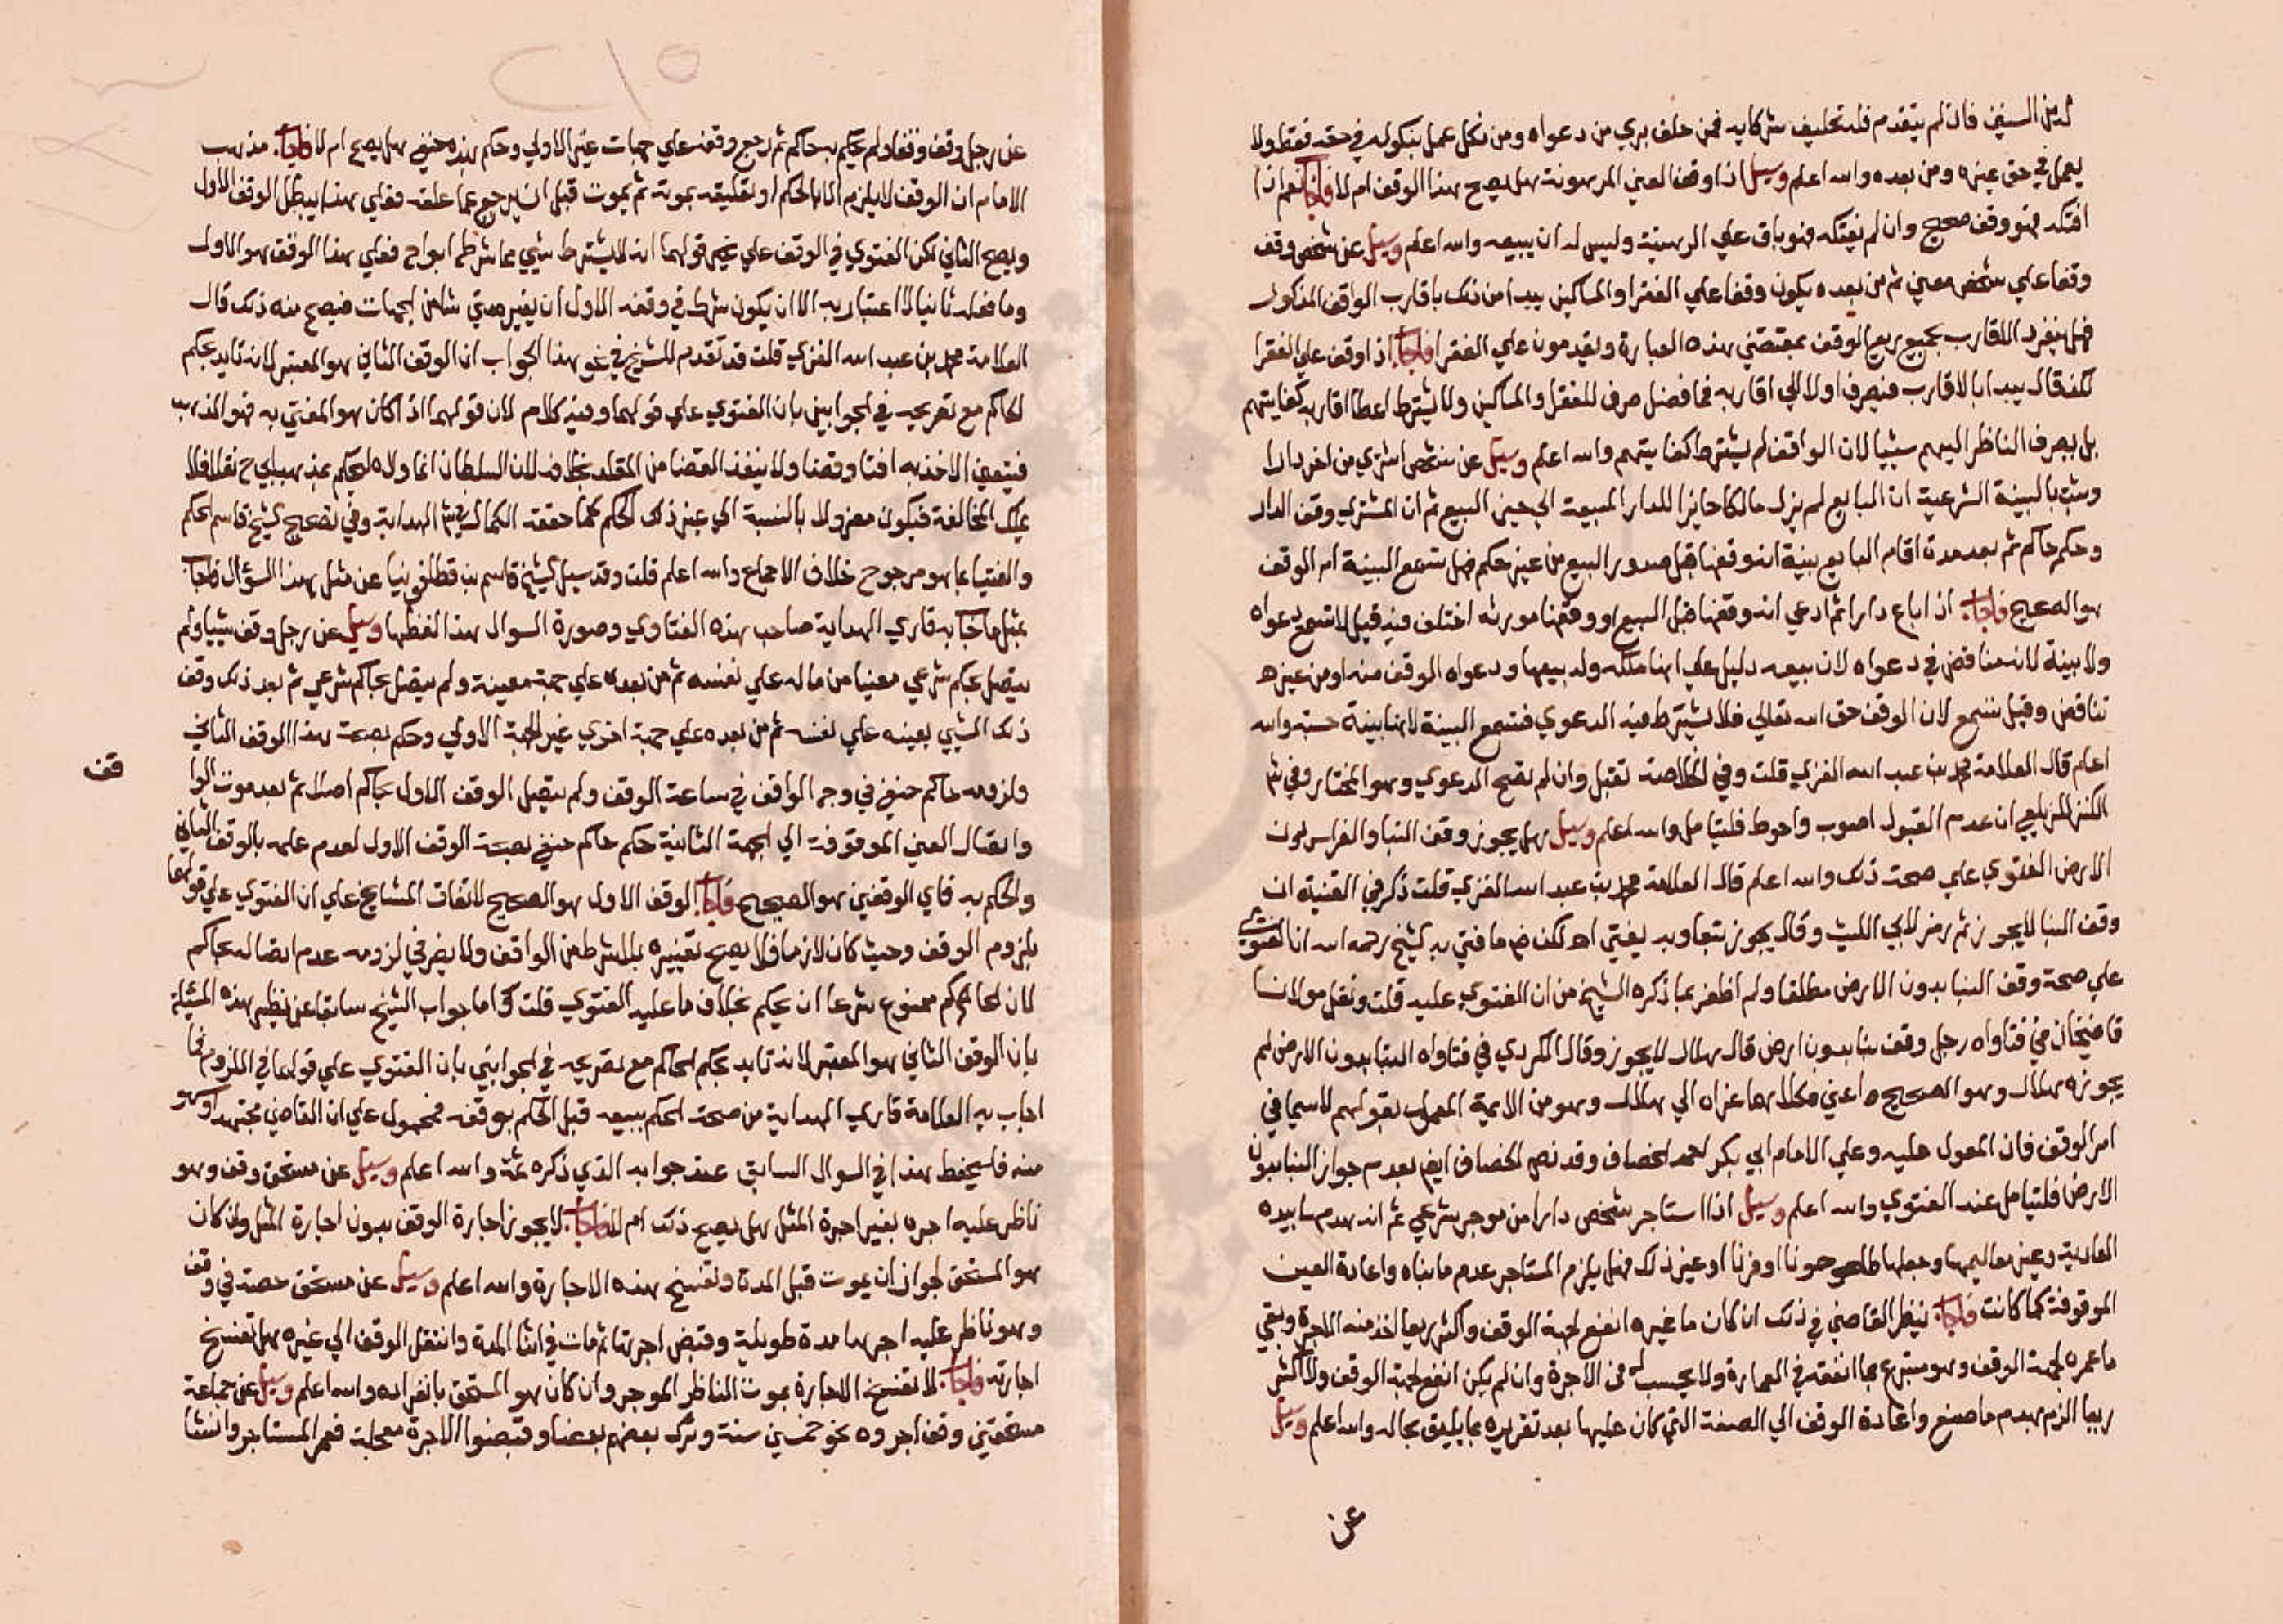 لدين السيفي فان لم يتقدم فله تحليف شركايه فمن حلف بري من دعواه ومن نكل عمل بنكوله في حقه فقط ولا
يعمل في حق غيره ومن بعده والله اعلم وسيل اذا وقف العين المرهونة هل يصح هذا الوقف ام لا فاجاب نعم اذا
افتكه فهو وقف صحيح وان لم يفتكه فهو باق علي الرهنية وليس له ان يبيعه والله اعلم وسيل عن شخص وقف
وقفا علي شخص معين ثم من بعده يكون وقفا علي الفقرا والمساكين يبدا من ذلك باقارب الواقف المذكور
فهل ينفرد الاقارب بجميع ريع الوقف بمقتضي هذه العبارة ويقدمون علي الفقرا فاجاب اذا وقف علي الفقرا
لكنه قال يبدا بالاقارب فيصرف اولا الي اقاربه فما فضل صرف للفقرا والمساكين ولا يشترط اعطا اقاربه كفايتهم
بل يصرف الناظر اليهم شيا لان الواقف لم يشترط كفايتهم والله اعلم وسيل عن شخص اشتري من اخر دارا
وثبت بالبينة الشرعية ان البايع لم يزل مالكا حايزا للدار المبيعة الي حين البيع ثم ان المشتري وقف الدار
وحكم حاكم ثم بعد مدة اقام البايع بينة انه وقفها قبل صدور البيع من غير حكم فهل تسمع البينة ام الوقف
هو الصحيح فاجاب اذا باع دارا ثم ادعي انه وقفها قبل البيع او وقفها مورثه اختلف فيه قيل لا تسمع دعواه
ولا بينة لانه مناقض في دعواه لان بيعه دليل علي انها ملكه وله بيعها ودعواه الوقف منه او من غيره
تناقض وقيل تسمع لان الوقف حق الله تعالي فلا يشترط فيه الدعوي فتسمع البينة لانها بينة حسبة والله
اعلم قال العلامة محمد بن عبد الله الغزي قلت وفي الخلاصة تقبل وان لم تصح الدعوي وهو المختار وفي شرح
الكنز للزيلعي ان عدم القبول اصوب واحوط فليتامل والله اعلم وسيل هل يجوز وقف البنا والغراس بدون
الارض الفتوي علي صحة ذلك والله اعلم قال العلامة محمد بن عبد الله الغزي قلت ذكر في القنية ان
وقف البنا لا يجوز ثم رمز لابي الليث وقال يجوز بتعاو وبه يفتي اه لكن ما فتي به الشيخ رحمه الله ان الفتوي
علي صحة وقف البنا بدون الارض مطلقا ولم اظفر بما ذكره الشيخ من ان الفتوي عليه قلت ونقل مولانا
قاضيخان في فتاواه رجل وقف بنا بدون ارض قال هلال لا يجوز وقال الكردي في فتاواه البنا بدون الارض لم
يجوزه هلال وهو الصحيح اعني كلاهما عزاه الي هلال وهو من الايمة المعمول بقولهم لا سيما في
امر الوقف فان المعول عليه وعلي الامام ابي بكر احمد الخصاف وقد نص الخصاف ايض بعدم جواز البنا بدون
الارض فليتامل عند الفتوي والله اعلم وسيل اذا استاجر شخص دارا من موجر شرعي ثم انه هدم ما بيده
العادية وغير معاليمها وجعلها حوشا او فرنا او غير ذلك فهل يلزم المستاجر هدم ما بناه واعادة العين
الموقوفة كما كانت فاجاب ينظر القاضي في ذلك ان كان ما غيره انفع لجهة الوقف واكثر ريعا اخذ منه الاجرة وبقي
ما عمره لجهة الوقف وهو متبرع بما انفقه في العمارة ولا يحسب له من الاجرة وان لم يكن انفع لجهة الوقف ولا اكثر
ريعا الزم بهدم ما صنع واعادة الوقف الي الصفة التي كان عليها بعد تعزيره بما يليق بحاله والله اعلم وسيل
عن
عن رجل وقف وقفا ولم يحكم به حاكم ثم رجع وقفه علي جهات غير الاولي وحكم بهذه حنفي هل يصح ام لا فاجاب مذهب
الامام ان الوقف لا يلزم الا بالحكم او تعليقه بموته ثم يموت قبل ان يرجع عما علقه فعلي هذا يبطل الوقف الاول
ويصح الثاني لكن الفتوي في الوقف علي قولهما انه لا يشترط شي مما شرطه ابو ح فعلي هذا الوقف هو الاول
وما فعله ثانيا لا اعتبار به الا ان يكون شرط في وقفه الاول ان يغير متي شا من الجهات فيصح منه ذلك قال
العلامة محمد بن عبد الله الغزي قلت قد تقدم للشيخ في نحو هذا الجواب ان الوقف الثاني هو المعتبر لانه تايد بحكم
الحاكم مع تصريحه في الجوابين بان الفتوي علي قولهما وفيه كلام لان قولهما اذا كان هو المفتي به فهو المذهب
فيتعين الاخذ به افتا وقضا ولا ينفذ القضا من المقلد بخلافه لان السلطان انما ولاه ليحكم بمذهب ابي ح نقلا فلا
يملك المخالفة فيكون معزولا بالنسبة الي غير ذلك الحكم كما حققه الكمال في شرح الهداية وفي تصحيح الشيخ قاسم الحكم
والفتيا بما هو مرجوح خلاف الاجماع والله اعلم قلت وقد سيل الشيخ قاسم بن قطلوبغا عن مثل هذا السؤال فاجاب
بمثل ما اجاب به قاري الهداية صاحب هذه الفتاوي وصورة السوال هذا لفظها وسيل عن رجل وقف شيا ولم
يتصل بحكم شرعي معينا من ماله علي نفسه ثم من بعده علي جهة معينة ولم يتصل بحاكم شرعي ثم بعد ذلك وقف
ذلك الشي بعينه علي نفسه ثم من بعده علي جهة اخري غير الجهة الاولي وحكم بصحة هذا الوقف الثاني
ولزومه حاكم حنفي في وجه الواقف في ساعة الوقف ولم يتصل الوقف الاول بحاكم اصلا ثم بعد موت الوا
قف
وانتقال العين الموقوفة الي الجهة الثانية حكم حاكم حنفي بصحة الوقف الاول لعدم علمه بالوقف الثاني
والحكم به فاي الوقفين هو الصحيح فاجاب الوقف الاول هو الصحيح لاتفاق المشايخ علي ان الفتوي علي قولهما
بلزوم الوقف وحيث كان لازما فلا يصح تغييره بلا شرط من الواقف ولا يضر في لزومه عدم اتصاله بحاكم
لان الحاكم ممنوع شرعا ان يحكم بخلاف ما عليه الفتوي قلت واما جواب الشيخ سابقا عن نظير هذه المسئلة
بان الوقف الثاني هو المعتبر لانه تايد بحكم الحاكم مع تصريحه في الجوابين بان الفتوي علي قولهما في اللزوم فما
اجاب به العلامة قاري الهداية من صحة الحكم ببيعه قبل الحكم بوقفه فمحمول علي ان القاضي مجتهد او سهو
منه فاليحفظ هذا في السوال السابق عند جوابه الذي ذكره ثمة والله اعلم وسيل عن مستحق وقف وهو
ناظر عليه اجره بغير اجرة المثل هل يصح ذلك ام لا فاجاب لا يجوز اجارة الوقف بدون اجارة المثل وان كان
هو المستحق لجواز ان يموت قبل المدة وتفسخ هذه الاجارة والله اعلم وسيل عن مستحق حصة في وقف
وهو ناظر عليه اجرها مدة طويلة وقبض اجرتها ثم مات في اثنا المدة وانتقل الوقف الي غيره هل تفسخ
اجارته فاجاب لا تفسخ الاجارة بموت الناظر الموجر وان كان هو المستحق بانفراده والله اعلم وسيل عن جماعة
مستحقين وقف اجروه نحو خمسين سنة وترك بعضهم بعضا وقبضوا الاجرة معجلة فعمر المستاجر وانشا